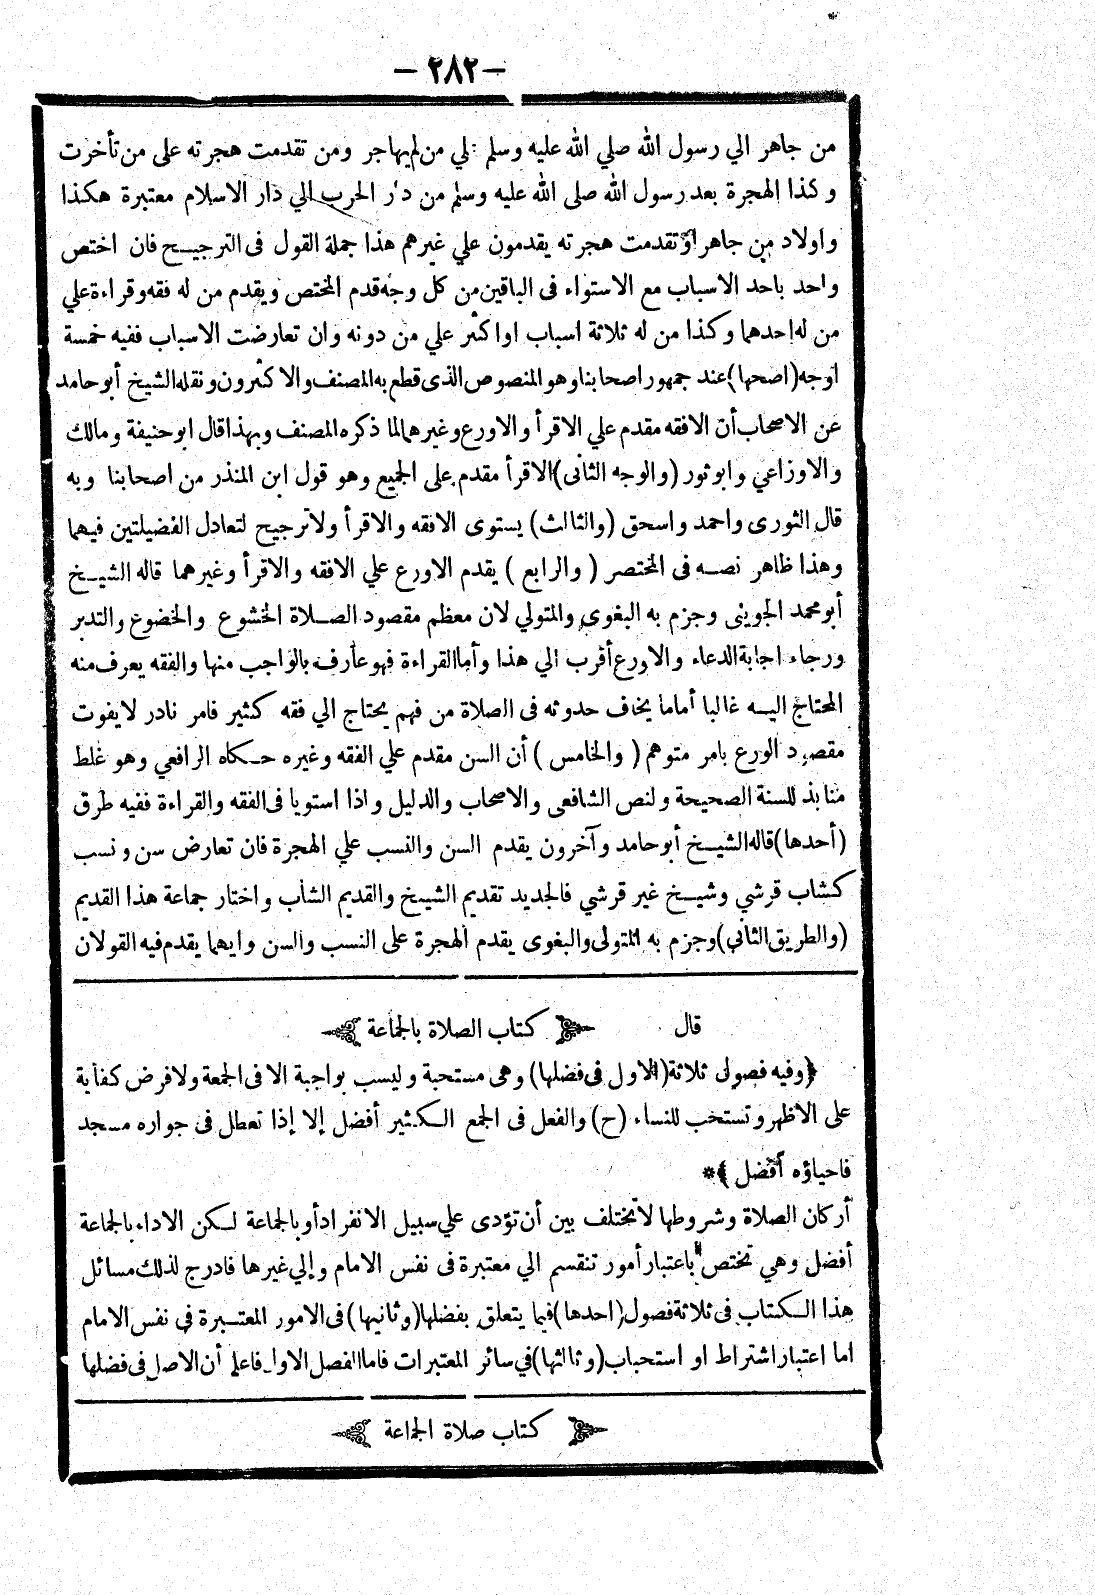 — ٢٨٢ —
من جاهر الي رسول الله صلي الله عليه وسلم علي من لم يهاجر ومن تقدمت هجرته على من تأخرت
وكذا الهجرة بعد رسول الله صلى الله عليه وسلم من دار الحرب الي دار الاسلام معتبرة هكذا
واولاد من جاهر أو تقدمت هجرته يقدمون علي غيرهم هذا جملة القول فى الترجيح فان اختص
واحد باحد الاسباب مع الاستواء فى الباقين من كل وجه قدم المختص ويقدم من له فقه وقراءة علي
من له احدهما وكذا من له ثلاثة اسباب او اكثر علي من دونه وان تعارضت الاسباب ففيه خمسة
اوجه (اصحها) عند جمهور اصحابنا وهو المنصوص الذى قطع به المصنف والاكثرون ونقله الشيخ أبو حامد
عن الاصحاب أن الافقه مقدم علي الاقرأ والاورع وغيرهما لما ذكره المصنف وبهذا قال ابو حنيفة ومالك
والاوزاعي وابو ثور (والوجه الثانى) الاقرأ مقدم على الجميع وهو قول ابن المنذر من اصحابنا وبه
قال الثورى واحمد واسحق (والثالث) يستوى الافقه والاقرأ ولا ترجيح لتعادل الفضيلتين فيهما
وهذا ظاهر نصه فى المختصر (والرابع) يقدم الاورع علي الافقه والاقرأ وغيرهما قاله الشيخ
أبو محمد الجوينى وجزم به البغوى والمتولي لان معظم مقصود الصلاة الخشوع والخضوع والتدبر
ورجاء اجابة الدعاء والاورع أقرب الي هذا وأما القراءة فهو عارف بالواجب منها والفقه يعرف منه
المحتاج اليه غالبا أما ما يخاف حدوثه فى الصلاة من فهم يحتاج الي فقه كثير فامر نادر لا يفوت
مقصود الورع بامر متوهم (والخامس) أن السن مقدم علي الفقه وغيره حكاه الرافعي وهو غلط
منابذ للسنة الصحيحة ولنص الشافعى والاصحاب والدليل واذا استويا فى الفقه والقراءة ففيه طرق
(أحدها) قاله الشيخ أبو حامد وآخرون يقدم السن والنسب علي الهجرة فان تعارض سن ونسب
كشاب قرشي وشيخ غير قرشي فالجديد تقديم الشيخ والقديم الشاب واختار جماعة هذا القديم
(والطريق الثاني) وجزم به المتولى والبغوى يقدم الهجرة على النسب والسن وايهما يقدم فيه القولان
قال كتاب الصلاة بالجماعة
﴿وفيه فصول ثلاثة (الاول فى فضلها) وهى مستحبة وليسب بواجبة الا فى الجمعة ولا فرض كفاية
على الاظهر وتستحب للنساء (ح) والفعل فى الجمع الكثير أفضل إلا إذا تعطل فى جواره مسجد
فاحياؤه أفضل ﴾*
أركان الصلاة وشروطها لا تختلف بين أن تؤدى علي سبيل الانفراد أو بالجماعة لكن الاداء بالجماعة
أفضل وهي تختص باعتبار أمور تنقسم الي معتبرة فى نفس الامام وإلي غيرها فادرج لذلك مسائل
هذا الكتاب فى ثلاثة فصول (احدها) فيما يتعلق بفضلها (وثانيها) فى الامور المعتبرة في نفس الامام
اما اعتبار اشتراط او استحباب (وثالثها) في سائر المعتبرات فاما الفصل الاول فاعلم أن الاصل فى فضلها
كتاب صلاة الجماعة